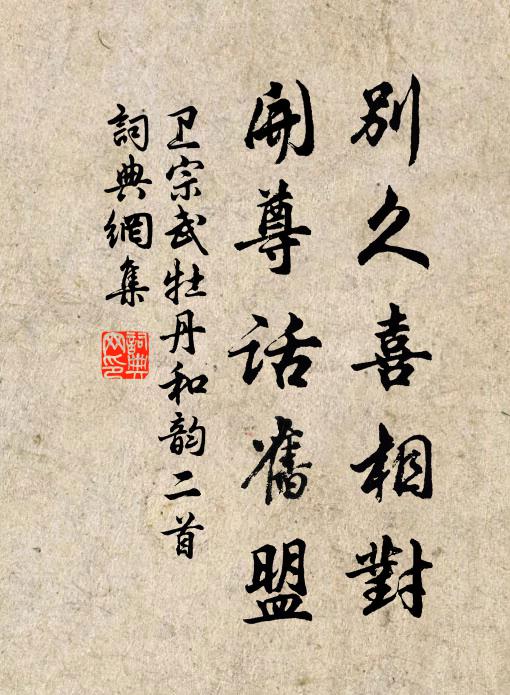 別久喜相對
開尊話舊盟
卫宗武牡丹和韵二首
詞典網集
詞典
网印